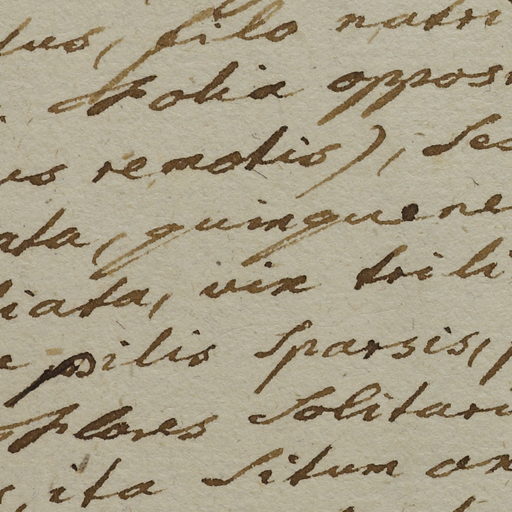 tus, filo natri
. Folia opposi
us remotis), ses
ata, quinquene
liata, vix trili
e pilis sparsis,
Flores solitari
, ita situm an